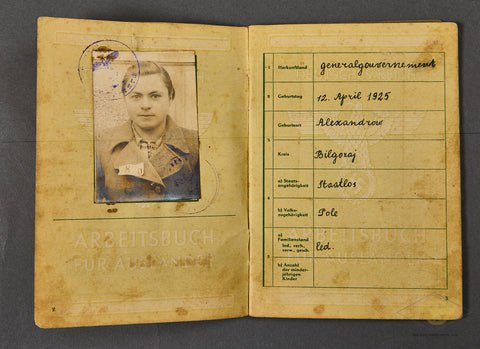 ARBEITSBUCH
FÜR AUSLÄNDER
2
1 Herkunftsland generalgouvernement
2 Geburtstag 12. April 1925
Geburtsort Alexandrow
3
Kreis Bilgoraj
a) Staats-
angehörigkeit Staatlos
4
b) Volks-
zugehörigkeit Pole
a) Familienstand
led., verh.,
verw., gesch. led.
5
b) Anzahl
der minder-
jährigen
Kinder
3